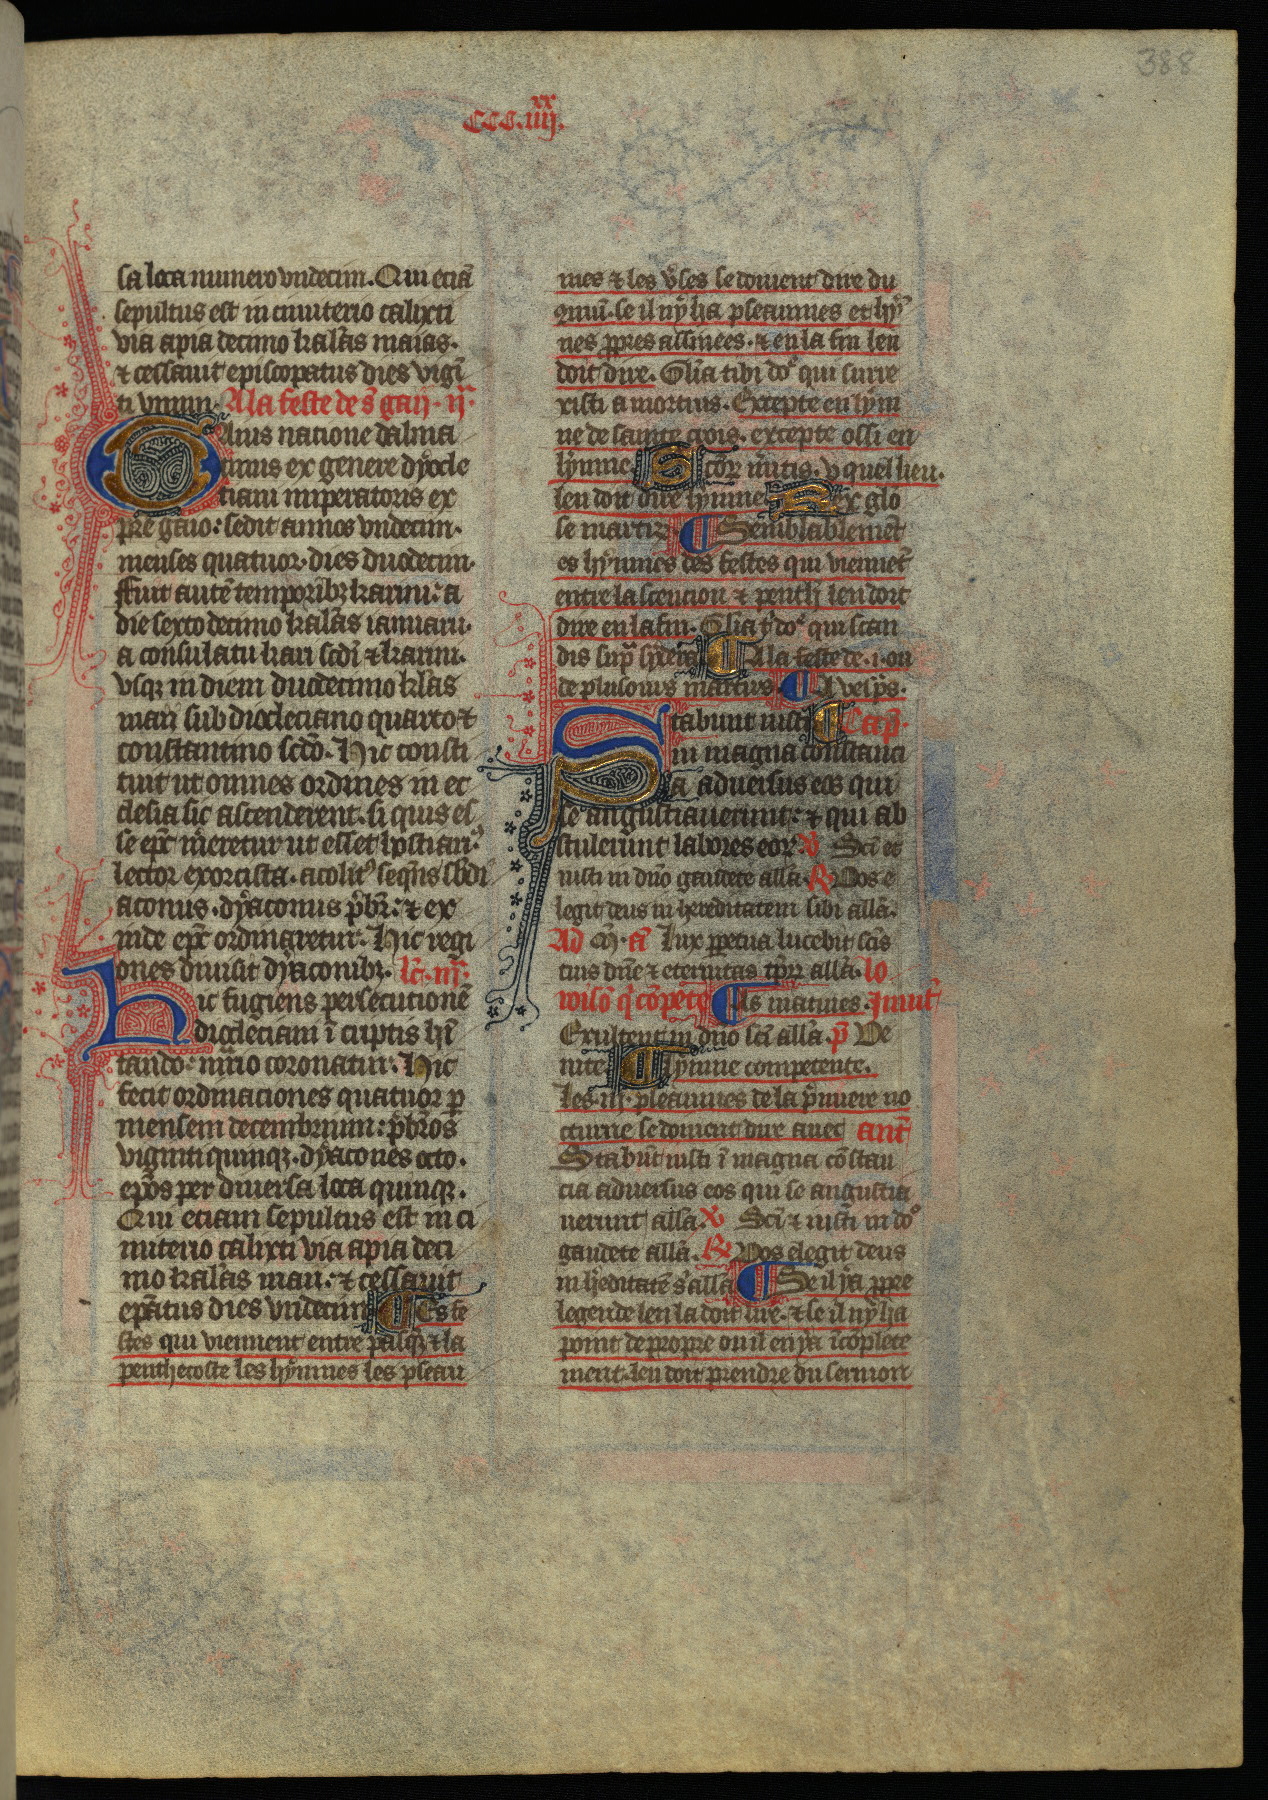 388
CCC.iiij.xx
sa loca numero vndecim. Qui eciã
sepultus est in cimiterio calixti
via apia decimo kalãs maias.
⁊ cessauit episcopatus dies vigĩ
ti vnum. A la feste de s̃ gaij. ij.
Aius natione dalma
tinus ex genere dyocle
tiani imperatoris ex
pr̃e gaio: sedit annos vndecim.
menses quatuor. dies duodecim.
ffuit autẽ temporibꝫ karini: a
die sexto decimo kalãs ianuarii.
a consulatu kari scdĩ ⁊ karini.
vsqꝫ in diem duodecimo klãs
maii sub diocleciano quarto ⁊
constantino scdõ. Hic consti
tuit ut omnes ordines in ec
clesia sic ascenderent. si quis es
se ep̃c m̃eretur ut esset hostiari᷒
lector exorcista. acolit᷒ seq̃ns sb̃di
aconus. dyaconus p̃br̃: ⁊ ex
inde ep̃c ordinaretur. Hic regi
ones diuisit dyaconibꝫ. lc̃. iij.
Hic fugiens persecutionẽ
diocleciani ĩ criptis hĩ
tando: mr̃io coronatur. Hic
fecit ordinaciones quatuor p
mensem decembrium: p̃br̃os
viginti quinqꝫ. dyacones octo.
ep̃os per diuersa loca quinqꝫ.
Qui etiam sepultus est in ci
miterio calixti via apia deci
mo kalãs maii: ⁊ cessauit
ep̃atus dies vndecim ¶ Es fe
stes qui viennent entre pasqꝫ ⁊ la
penthecoste les hymnes les pseau
mes ⁊ les v̾ses se doiuent dire du
q̃muñ. se il ny ha pseaumes et hy
nes ꝓpres assinees. ⁊ en la fin len
doit dire. Gl̃ia tibi dõ qui surre
xisti a mortuis. Excepte en lym
ne de sainte crois. excepte ossi en
lymne Sc̃or̃ m̃itis. v quel lieu.
len doit dire lymne Rex glo
se martirꝫ ¶ Semblablemẽt
es hymnes des festes qui viennẽt
entre lascencion ⁊ penth̃ len doit
dire en la fin. Gl̃ia t̾ dõ qui scan
dis sup̃ sydera ¶ A la feste de .i. ou
de plusours martirs ¶ A vesp̃s.
Stabunt iusti ¶ Cap̃.
in magna constanci
a aduersus eos qui
se angustiauerunt: ⁊ qui ab
stulerunt labores eor̃. v̾ Scĩ et
iusti in dño gaudete allã. R̾ Vos e
legit deus in hereditatem sibi allã.
Ad m̃. ã Lux ꝑpetua lucebit sc̃is
tuis dñe ⁊ eternitas tp̃r̃ allã. lo
roisõ q̾ cõpete ¶ As matines. Inuit̃
Exultent in dño scĩ allã. p̃ Ve
nite ¶ Lymne competente.
Les .iij. pseaumes de la p̃miere no
cturne se doiuent dire auec ant̃
Stabũt iusti ĩ magna cõstan
cia aduersus eos qui se angustia
uerunt allã. v̾ Scĩ ⁊ iusti in dõ
gaudete allã. R̾ Vos elegit deus
in h̾editatẽ s̾ allã ¶ Se il ya ꝓpre
legende len la doit lire. ⁊ se il ny ha
point de propre ou il en ya ĩcõplete
ment. len doit prendre du sermon